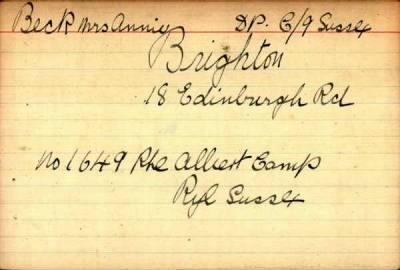 Beck Mrs Annie DP. C/9 Sussex
Brighton
18 Edinburgh Rd
No 1649 Pte Albert Camp
Ryl Sussex